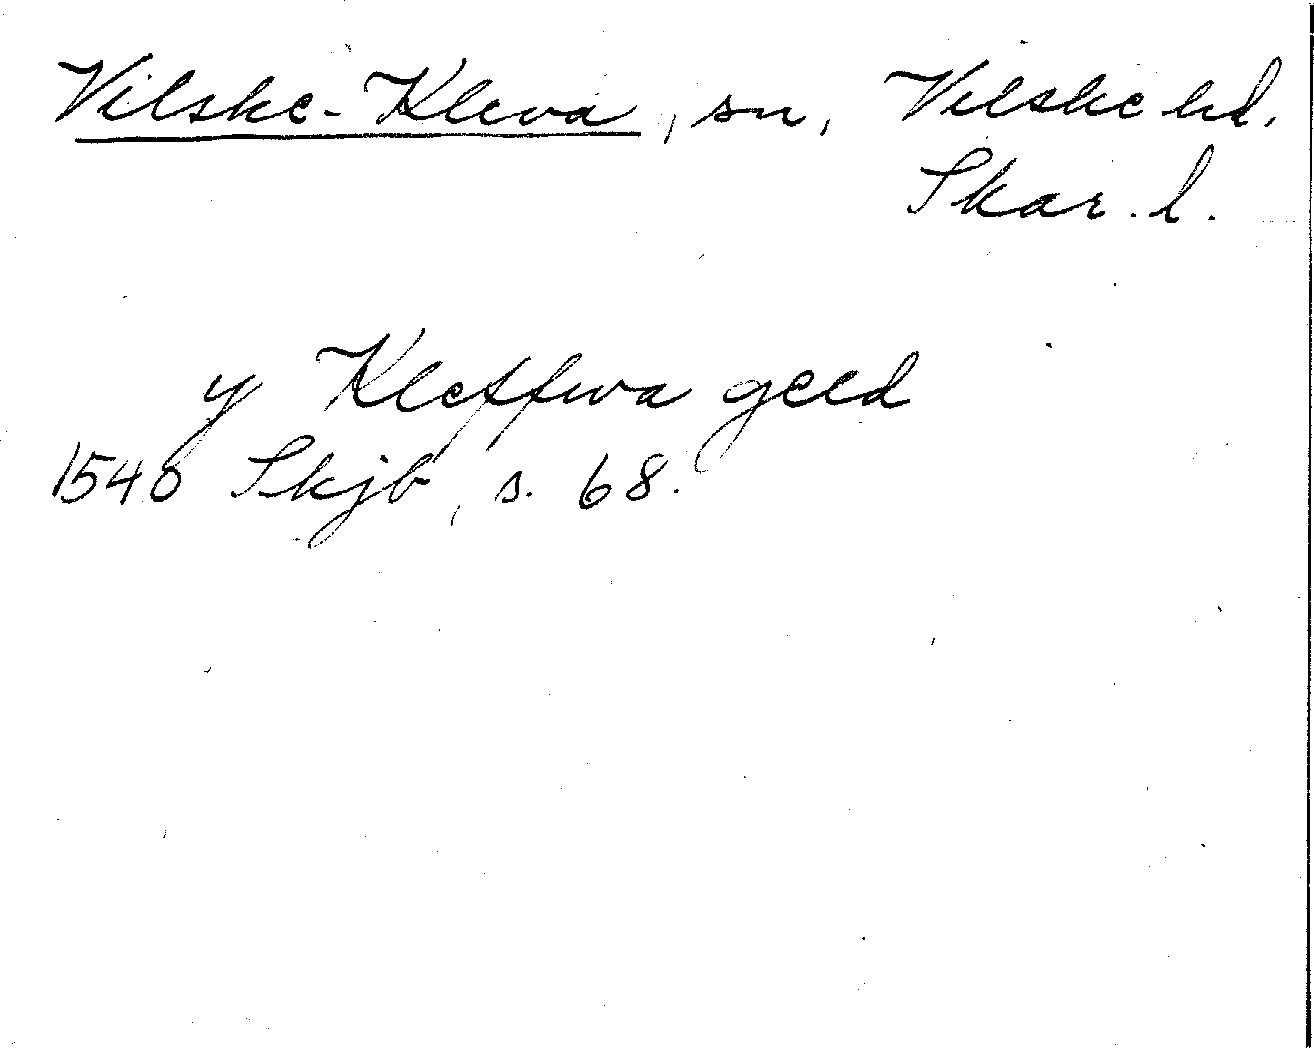 Vilske-Kleva, sn, Vilske hd.
Skar. l.
y Kleffwa geld
1540 Skjb, s. 68.